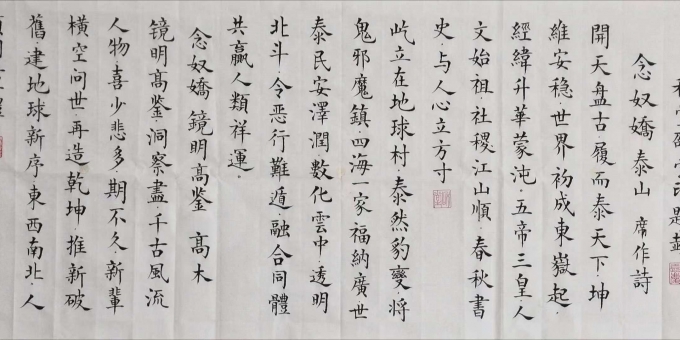 念奴嬌 泰山 席作詩
開天盤古·履而泰天下·坤
維安稳·世界初成東嶽起·
經緯升華蒙沌·五帝三皇人
文始祖·社稷江山順·春秋書
史·与人心立方寸
屹立在地球村·泰然豹變·将
鬼邪魔鎮·四海一家福納廣世
泰民安澤潤數化雲中·透明
北斗·令恶行難遁·融合同體
共赢人類祥運·
念奴嬌 鏡明髙鉴 髙木
镜明髙鉴·洞察盡·千古風流
人物·喜少悲多·期不久·新輩
横空问世·再造乾坤·推新破
舊建地球新序·東西南北·人